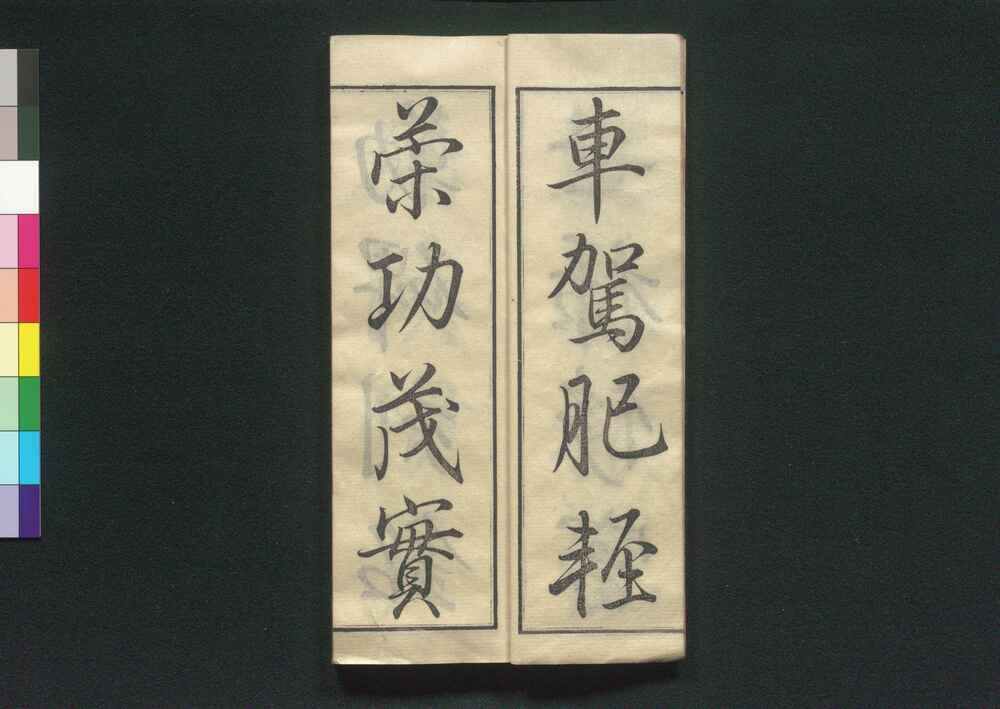 車駕肥輕
策功茂實